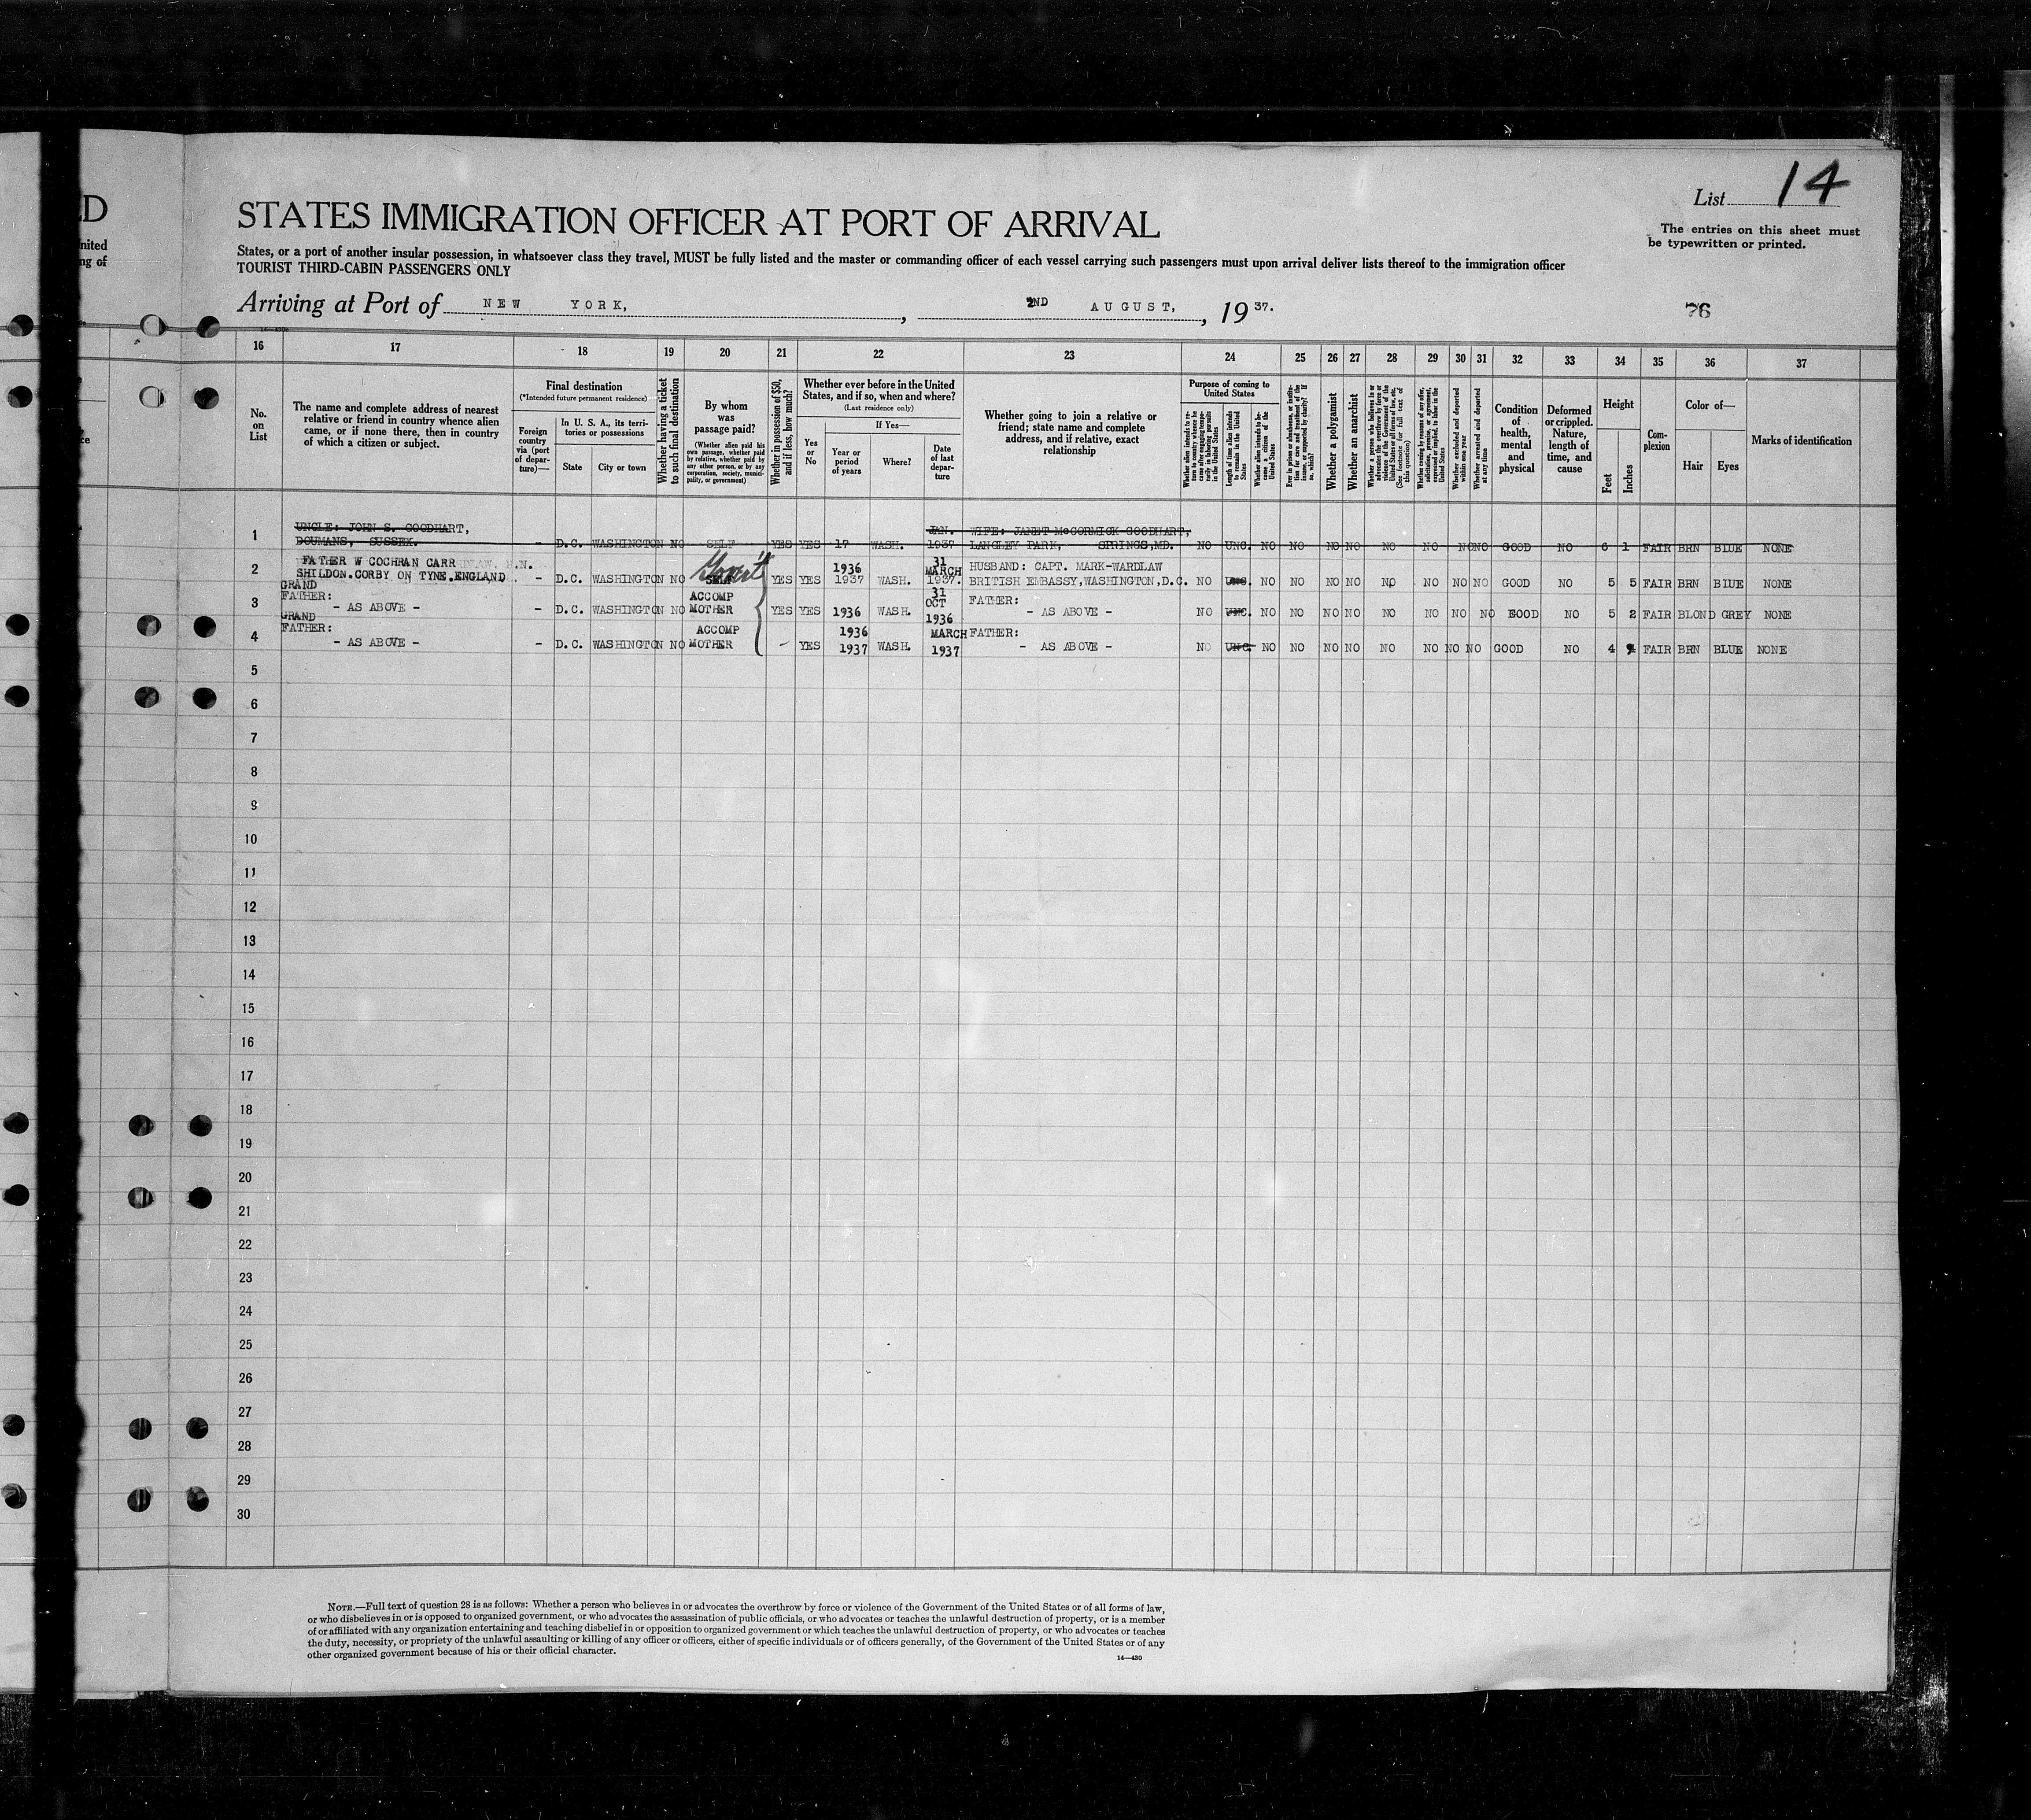 List 14
The entries on this sheet must
be typewritten or printed.
D
STATES IMMIGRATION OFFICER AT PORT OF ARRIVAL
nited
ng of
States, or a port of another insular possession, in whatsoever class they travel, MUST be fully listed and the master or commanding officer of each vessel carrying such passengers must upon arrival deliver lists thereof to the immigration officer
TOURIST THIRD-CABIN PASSENGERS ONLY
Arriving at Port of NEW YORK, , 2ND AUGUST, , 19 37.
76
16 17 18 19 20 21 22 23 24 25 26 27 28 29 30 31 32 33 34 35 36 37
No. on List
The name and complete address of nearest
relative or friend in country whence alien
came, or if none there, then in country
of which a citizen or subject.
Final destination
(*Intended future permanent residence)
Foreign country via (port of departure)—
In U. S. A., its territories or possessions
State
City or town
Whether having a ticket to such final destination
By whom was passage paid?
(Whether alien paid his own passage, whether paid by relative, whether paid by any other person, or by any corporation, society, municipality, or government)
Whether in possession of $50, and if less, how much?
Whether ever before in the United
States, and if so, when and where?
(Last residence only)
Yes or No
If Yes—
Year or period of years
Where?
Date of last departure
Whether going to join a relative or
friend; state name and complete
address, and if relative, exact
relationship
Purpose of coming to United States
Whether alien intends to return to country whence he came after engaging temporarily in laboring pursuits in the United States
Length of time alien intends to remain in the United States
Whether alien intends to become a citizen of the United States
Ever in prison or almshouse, or institution for care and treatment of the insane, or supported by charity? If so, which?
Whether a polygamist
Whether an anarchist
Whether a person who believes in or advocates the overthrow by force or violence of the Government of the United States or all forms of law, etc. (See footnote for full text of this question)
Whether coming by reason of any offer, solicitation, promise, or agreement, expressed or implied, to labor in the United States
Whether excluded and deported within one year
Whether arrested and deported at any time
Condition of health, mental and physical
Deformed or crippled. Nature, length of time, and cause
Height
Feet
Inches
Complexion
Color of—
Hair
Eyes
Marks of identification
1 UNCLE: JOHN S. GOODHART, JAN. WIFE: JANET McCORMICK GOODHART,
DOUMANS, SUSSEX. - D.C. WASHINGTON NO SELF YES YES 17 WASH. 1937 LANGLEY PARK, SPRINGS,MD. NO UNC. NO NO NO NO NO NO NO NO GOOD NO 6 1 FAIR BRN BLUE NONE
2 FATHER W COCHRAN CARR Govert 1936 31 MARCH HUSBAND: CAPT. MARK-WARDLAW
SHILDON.CORBY ON TYNE.ENGLAND - D.C. WASHINGTON NO SELF YES YES 1937 WASH. 1937. BRITISH EMBASSY,WASHINGTON,D.C. NO UNC. NO NO NO NO NO NO NO NO GOOD NO 5 5 FAIR BRN BLUE NONE
3 GRAND FATHER: ACCOMP 31 OCT FATHER:
- AS ABOVE - - D.C. WASHINGTON NO MOTHER YES YES 1936 WASH. 1936 - AS ABOVE - NO UNC. NO NO NO NO NO NO NO NO GOOD NO 5 2 FAIR BLOND GREY NONE
4 GRAND FATHER: ACCOMP 1936 MARCH FATHER:
- AS ABOVE - - D.C. WASHINGTON NO MOTHER - YES 1937 WASH. 1937 - AS ABOVE - NO UNC. NO NO NO NO NO NO NO NO GOOD NO 4 FAIR BRN BLUE NONE
5
6
7
8
9
10
11
12
13
14
15
16
17
18
19
20
21
22
23
24
25
26
27
28
29
30
NOTE.—Full text of question 28 is as follows: Whether a person who believes in or advocates the overthrow by force or violence of the Government of the United States or of all forms of law,
or who disbelieves in or is opposed to organized government, or who advocates the assassination of public officials, or who advocates or teaches the unlawful destruction of property, or is a member
of or affiliated with any organization entertaining and teaching disbelief in or opposition to organized government or which teaches the unlawful destruction of property, or who advocates or teaches
the duty, necessity, or propriety of the unlawful assaulting or killing of any officer or officers, either of specific individuals or of officers generally, of the Government of the United States or of any
other organized government because of his or their official character.
14—430